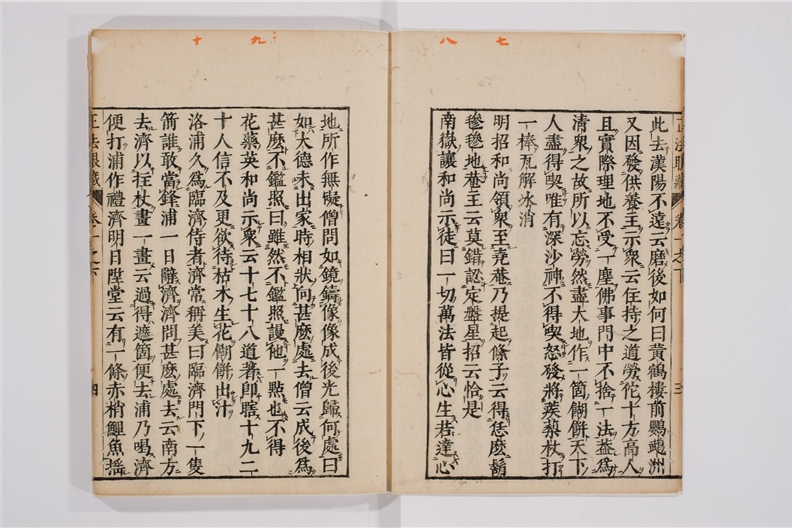 七八
此去漢陽不遠云磨後如何曰黃鶴樓前鸚鵡洲
又因發供養主示衆云住持之道勞佗十方高人
且實際理地不受一塵佛事門中不捨一法益爲
清衆之故所以忘勞然盡大地作一箇餬餅天下
人盡得喫唯有深沙神不得喫怒發將蒺䔧杖打
一棒瓦解氷消
明招和尚領衆至堯菴乃提起絛子云得恁麽鬅
毿毿地菴主云莫錯認定盤星招云恰是
南嶽讓和尚示徒曰一切萬法皆從心生若達心
九十
地所作無礙僧問如鏡鑄像像成後光歸何處曰
如大德未出家時相狀向甚麽處去僧云成後爲
甚麽不鑑照曰雖然不鑑照謾他一㸃也不得
花藥英和尚示衆云十七十八道著卽瞎十九二
十人信不及更欲待枯木生花餬餅出汁
洛浦久爲臨濟侍者濟常稱美曰臨濟門下一隻
箭誰敢當鋒浦一日辭濟濟問甚麽處去云南方
去濟以拄杖畫一畫云過得遮箇便去浦乃喝濟
便打浦作禮濟明日陞堂云有一條赤梢鯉魚搖
正法眼藏 卷一之下 四